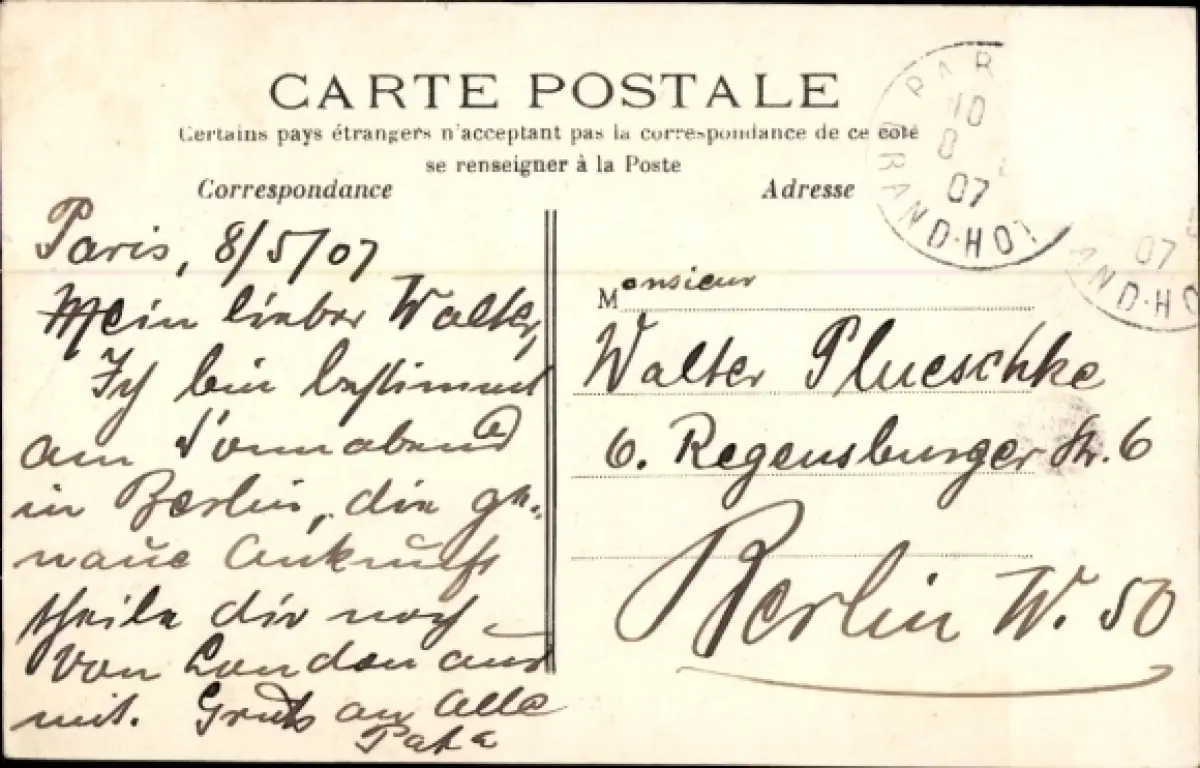 CARTE POSTALE
Certains pays étrangers n'acceptant pas la correspondance de ce coté
se renseigner à la Poste
Correspondance
Adresse
Paris, 8/5/07
Mein lieber Walter,
Ich bin bestimmt
am Sonnabend
in Berlin, die ge-
naue Ankunft
theile dir noch
von London aus
mit. Gruß an Alle
Papa
Monsieur
Walter Plueschke
6. Regensburger Str. 6
Berlin W. 50
PAR
10
07
GRAND-HOT
07
AND-HO